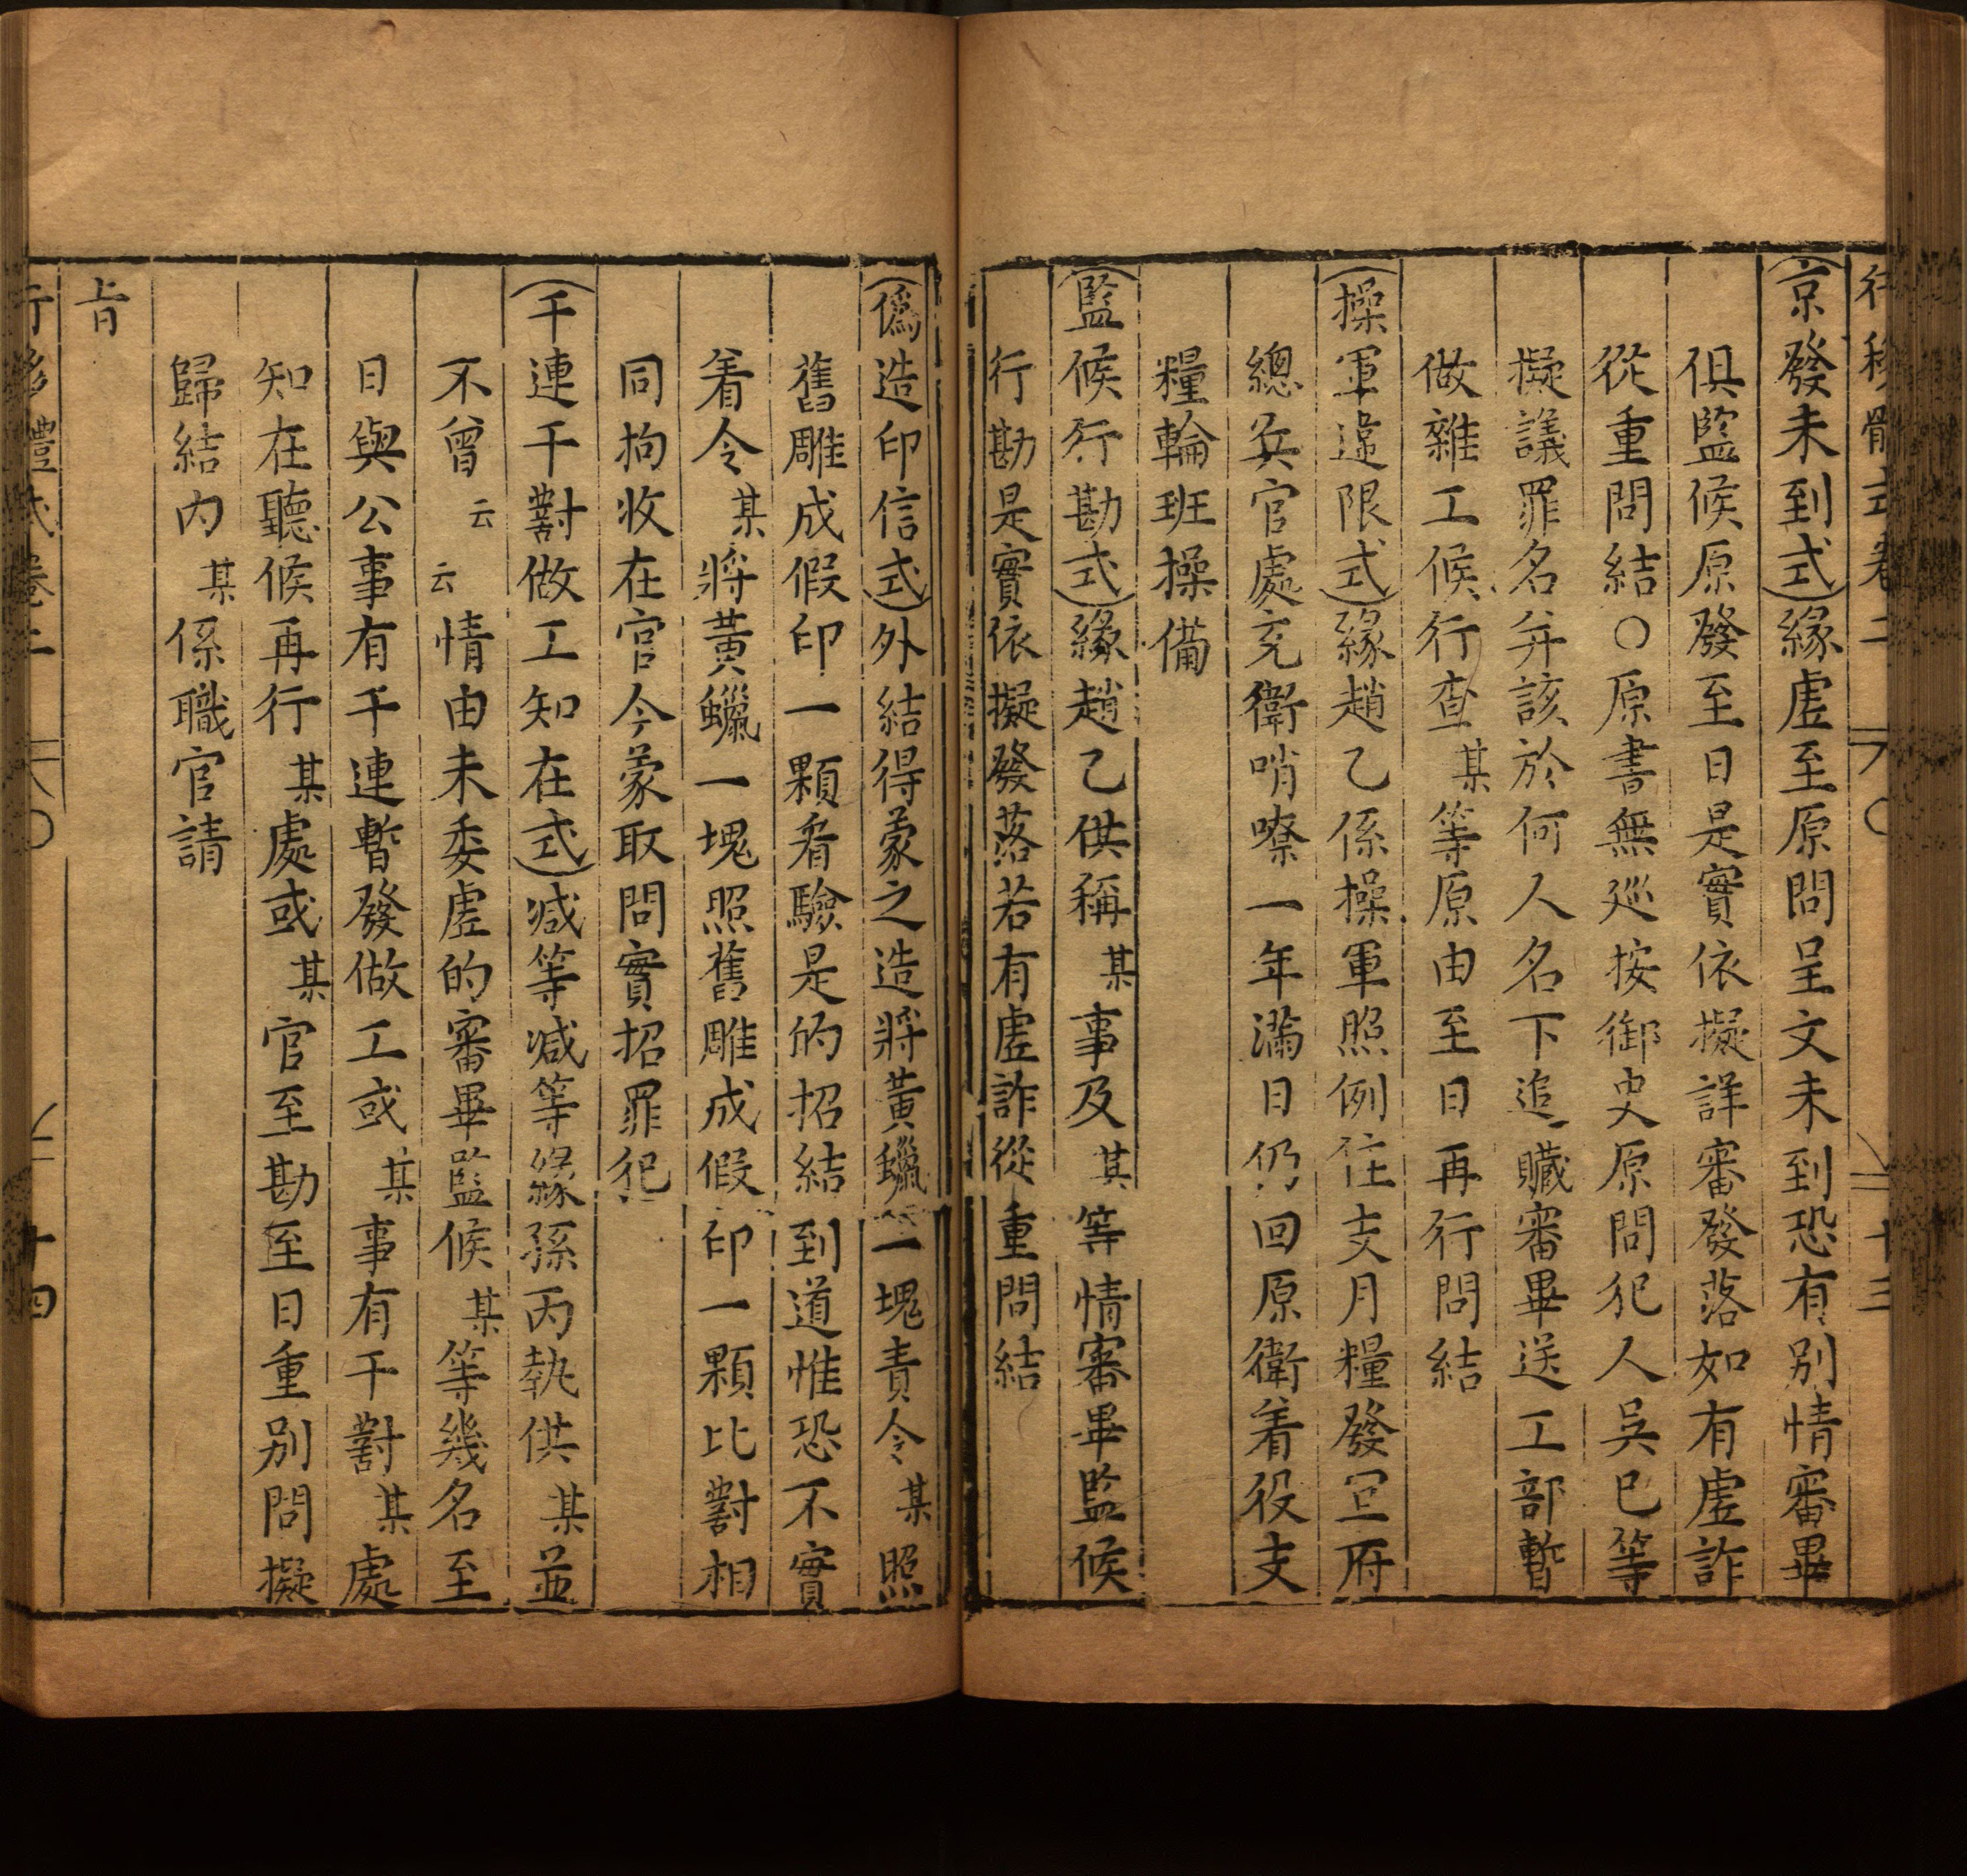 京發未到式緣虛至原問呈文未到恐有别情審畢
俱監候原發至日是實依擬詳審發落如有虛詐
從重問結○原書無廵按御史原問犯人吳巳等
擬議罪名弁該於何人名下追贜審畢送工部暫
做雜工候行查某等原由至日再行問結
操軍違限式緣趙乙係操軍照例住支月糧發宣府
總兵官處充衛哨嘹一年滿日仍回原衛着役支
糧輪班操備
監候行勘式緣趙乙供稱某事及某等情審畢監候
行勘是實依擬發落若有虛詐從重問結
偽造印信式外結得蒙之造將黃蠟一塊責令某照
舊雕成假印一顆看驗是的招結到道惟恐不實
着令某將黃蠟一塊照舊雕成假印一顆比對相
同拘收在官今蒙取問實招罪犯
干連干對做工知在式减等减等緣孫丙執供某並
不曾云云情由未委虛的審畢監候某等幾名至
日與公事有干連暫發做工或某事有干對某處
知在聽候再行某處或某官至勘至日重别問擬
歸結内某係職官請
旨
行移體式卷二 十四